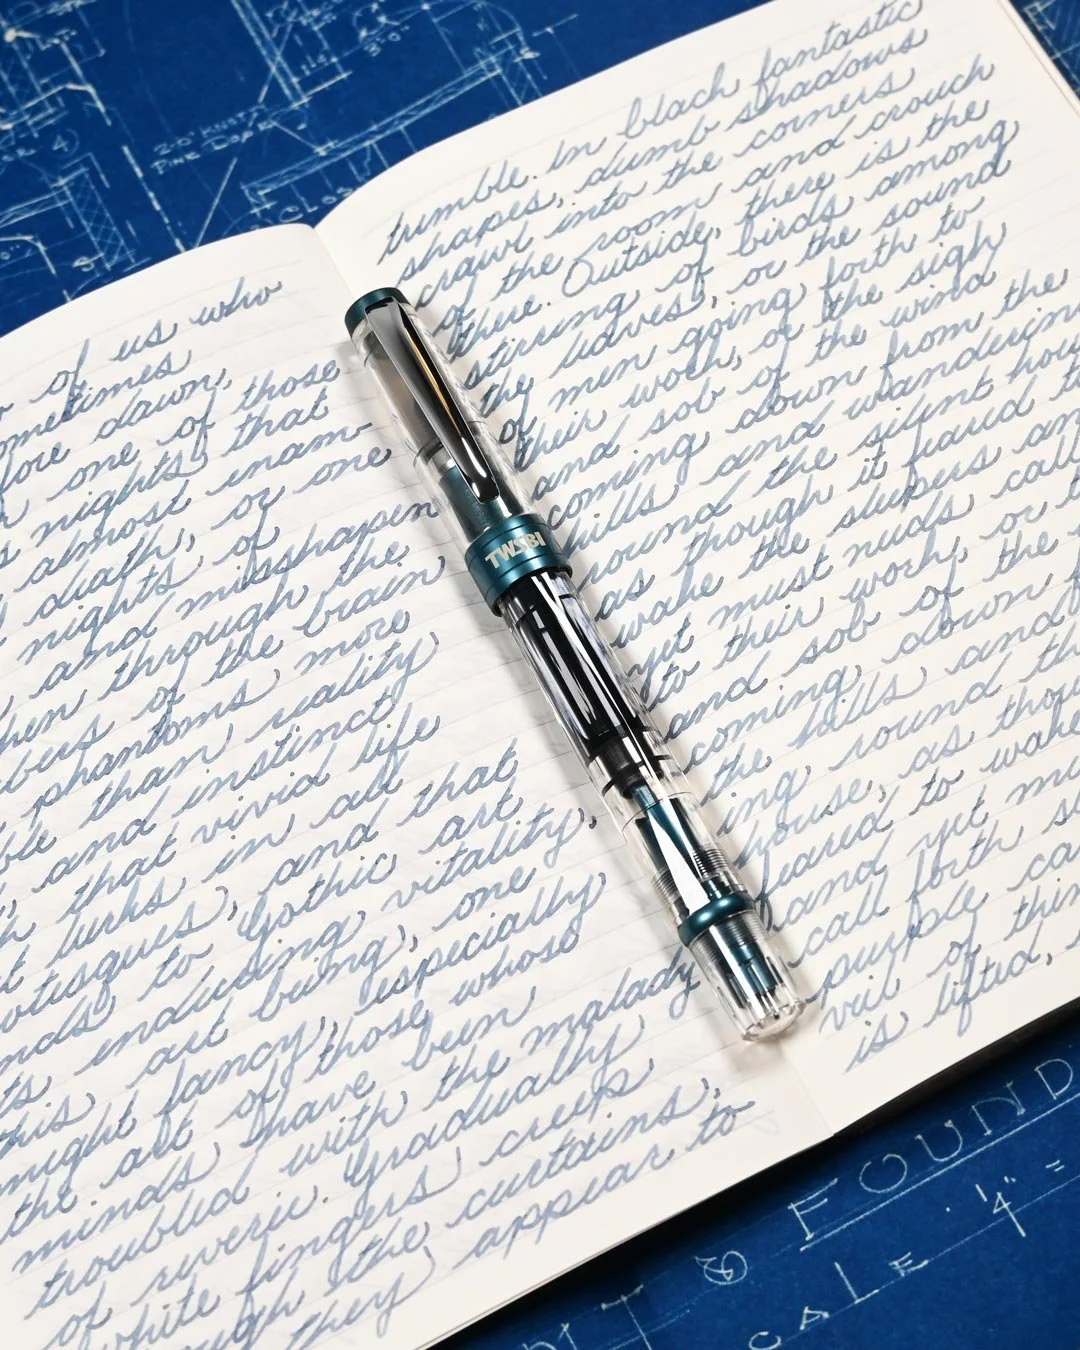 of us who
ometimes
fore dawn,
one of those
nights that
almost enam-
death, or one
nights of
and misshapen
hen through the
bers of the brain
phantoms more
ble than reality
and instinct
that vivid life
t lurks in all
otesques, and that
nds to Gothic art
ts enduring vitality,
this art being, one
might fancy, especially
the art of those whose
minds have been
troubled with the malady
of reverie. Gradually
white fingers creep
ough the curtains,
they appear to
tremble. In black fantastic
shapes, dumb shadows
crawl into the corners
of the room and crouch
there. Outside, there is the
stirring of birds among
the leaves, or the sound
of men going forth to
their work, or the sigh
and sob of the wind
coming down from the
hills and wandering
round the silent hou
as though it feared t
wake the sleepers an
yet must needs call
to their work, or t
and sob of the
coming, down f
the hills and
ing round th
house, as thou
feared to wake
and yet mu
call forth s
purple ca
veil of thin
is lifted,
TWSBI
FOUND
SCALE 1/4" =